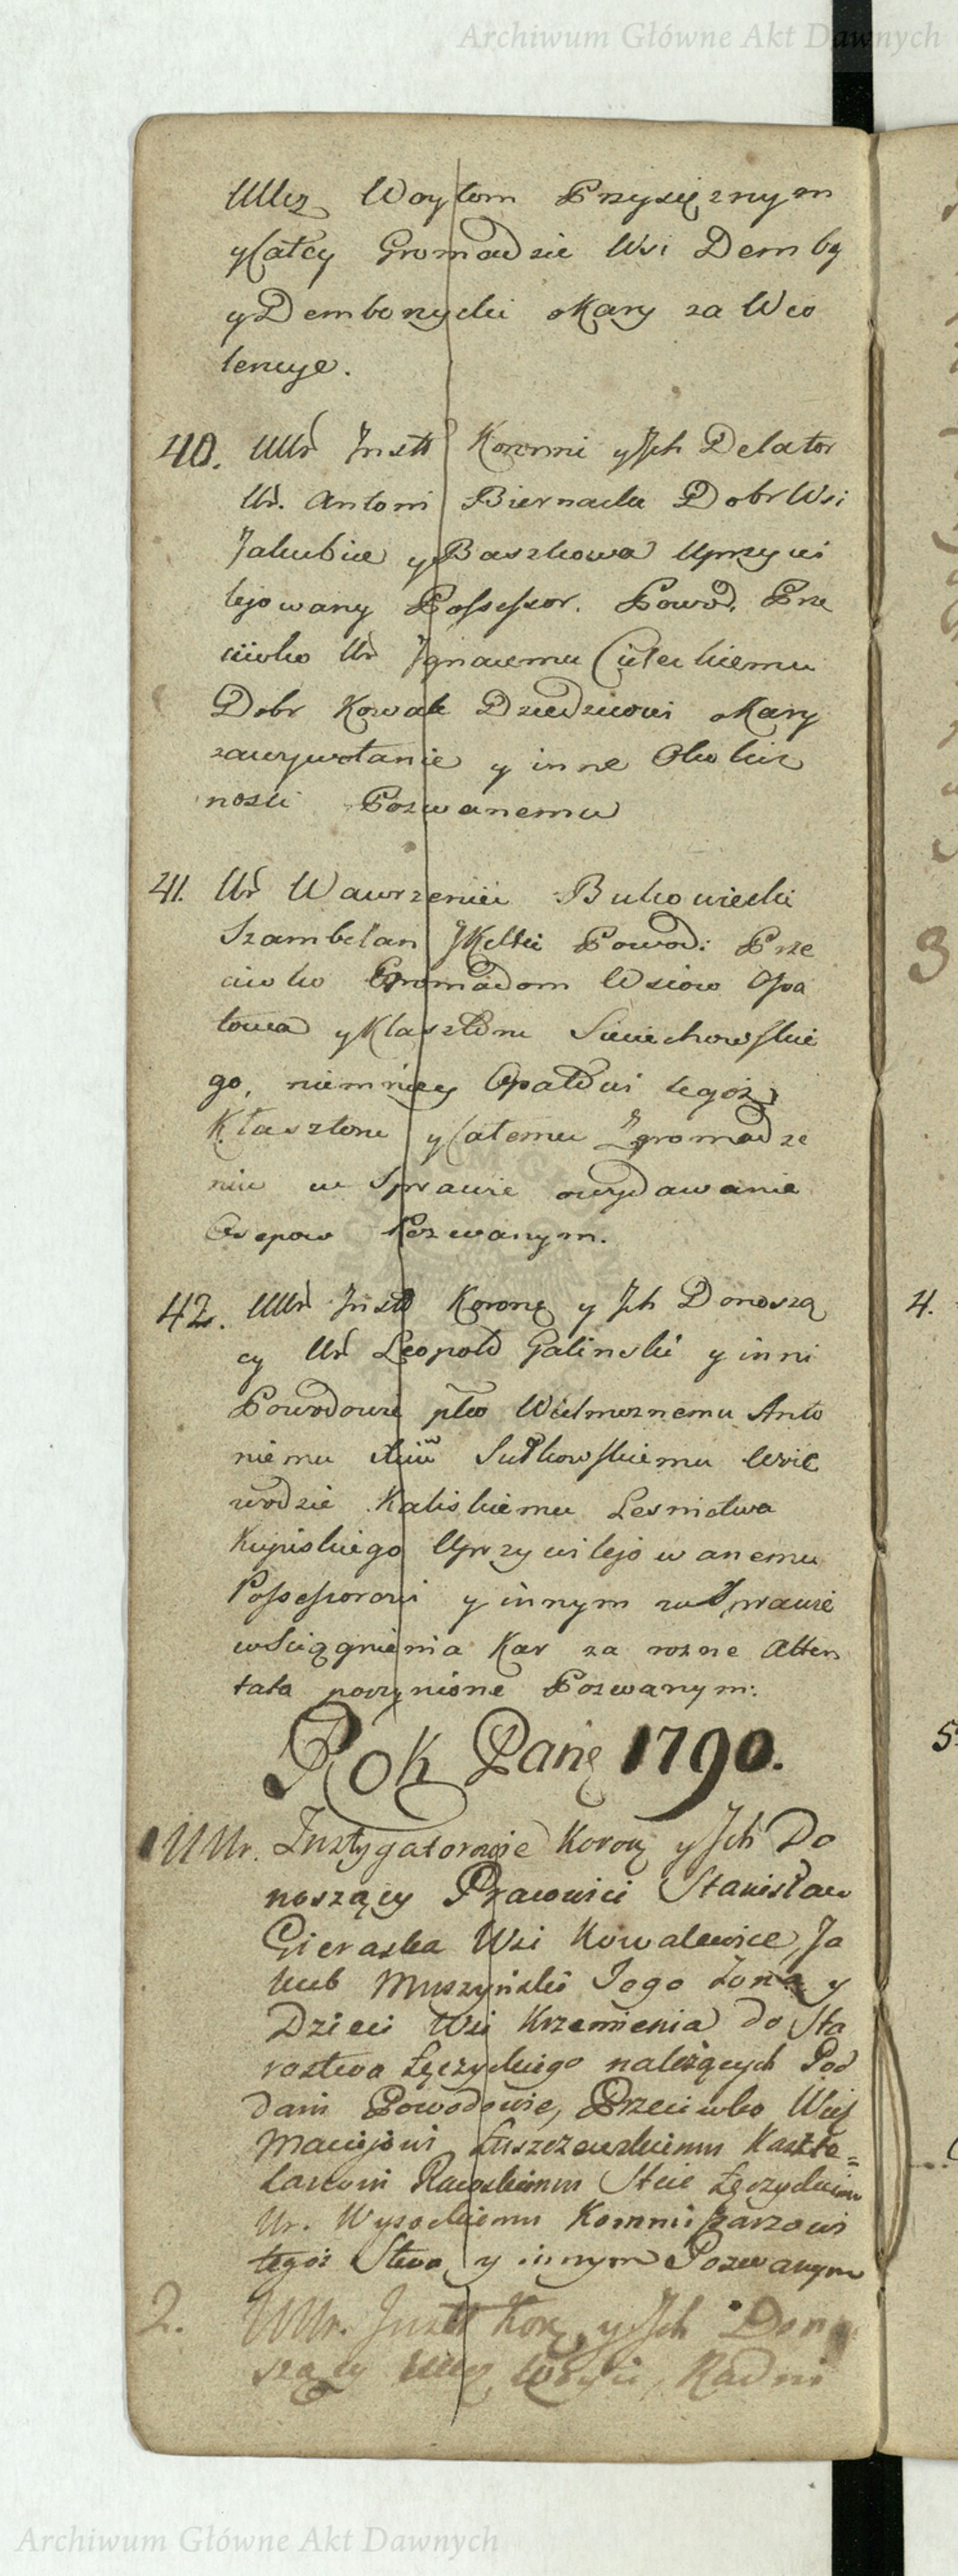 Archiwum Główne Akt Dawnych
UUcz Woytom Przysięznym
y całey Gromadzie Wsi Demby
y Dembonycki o Kary za Wio
lencye.
40. UUr Instt Koronni y Ich Delator
Ur. Antoni Biernacki Dobr Wsi
Jakubice y Baszkowa Uprzywi
lejowany Possessor. Powod. Prze
ciwko Ur Ignacemu Cieleckiemu
Dobr Kowale Dziedzicowi o Kary
za wywołanie y inne Okolicz
nosci Pozwanemu
41. Ur Wawrzeniec Bukowiecki
Szambelan JKMci Powod: Prze
ciwko Gromadom Wsiow Opa
towa y Klasztoru Sieciechowskie
go, niemniey Opatowi tegoż
Klasztoru y całemu Zgromadze
niu w Sprawie o wydawanie
Osepow Pozwanym.
42. UUr Instt Koronę y Ich Donoszą
cy Ur Leopold Galinski y inni
Powodowie ptko Wielmoznemu Anto
niemu Sułkowskiemu Woie
wodzie Kaliskiemu Lesnictwa
Uprzywilejowanemu
Possessorowi y innym w Sprawie
wsciągnienia Kar za rozne Atten
tata poczynione Pozwanym:
Rok Panę 1790.
1 UUr. Instygatorowie Korony y Ich Do
noszący Pracowici Stanisław
Gieraska Wsi Kowalewice, Ja
kub Muszyński Jego Zona y
Dzieci Wsi Krzemienia do Sta
rostwa Łęczyckiego należących Pod
dani Powodowie, Przeciwko Wiel
Maciejowi Łuszczewskiemu Kaszte=
lanowi Rawskiemu Stcie Łęczyckiemu
Ur. Wysockiemu Kommissarzowi
tegoż Stwa y innym Pozwanym
2. UUr. Instt Korę y Ich Dono
szący UUcz Woyci, Radni
3
4.
5
Archiwum Główne Akt Dawnych